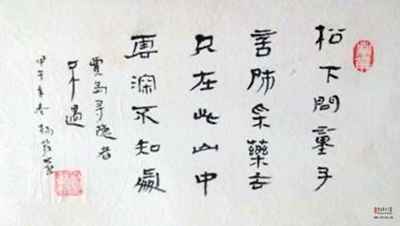 松下問童子
言師采藥去
只在此山中
雲深不知處
賈島尋隱者
不遇
甲午年冬